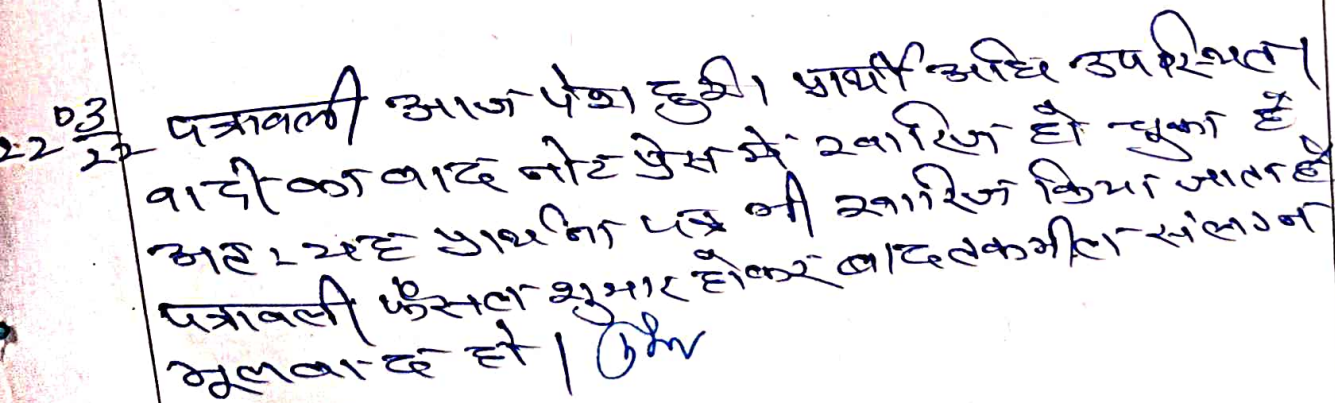 22 03/22 पत्रावली आज पेश हुयी। प्रार्थी अधि उपस्थित।
वादी का वाद नोट प्रेस में खारिज हो चुका है
अतः यह प्रार्थना पत्र भी खारिज किया जाता है
पत्रावली फैसल शुमार होकर बाद तकमील संलग्न
मूलवाद हो।